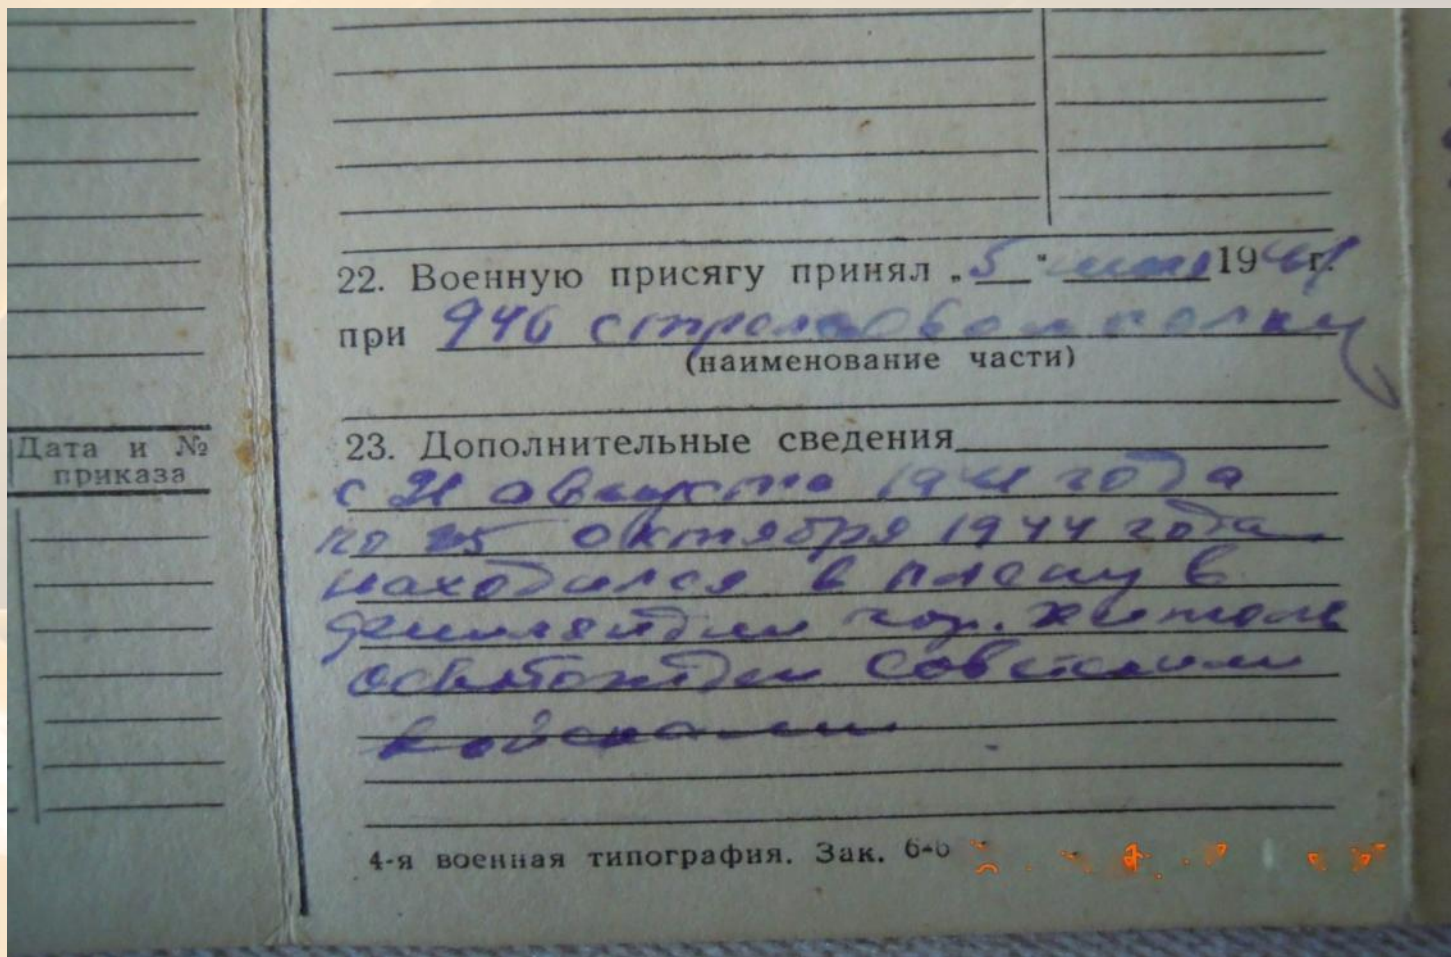 22. Военную присягу принял „5" 1941 г.
при 946 стрелковом полку
(наименование части)
Дата и №
приказа
23. Дополнительные сведения
с 21 августа 1941 года
по 25 октября 1944 года
находился в плену в
Финляндии гор.
освобожден Советскими
войсками
4-я военная типография. Зак. 6-6